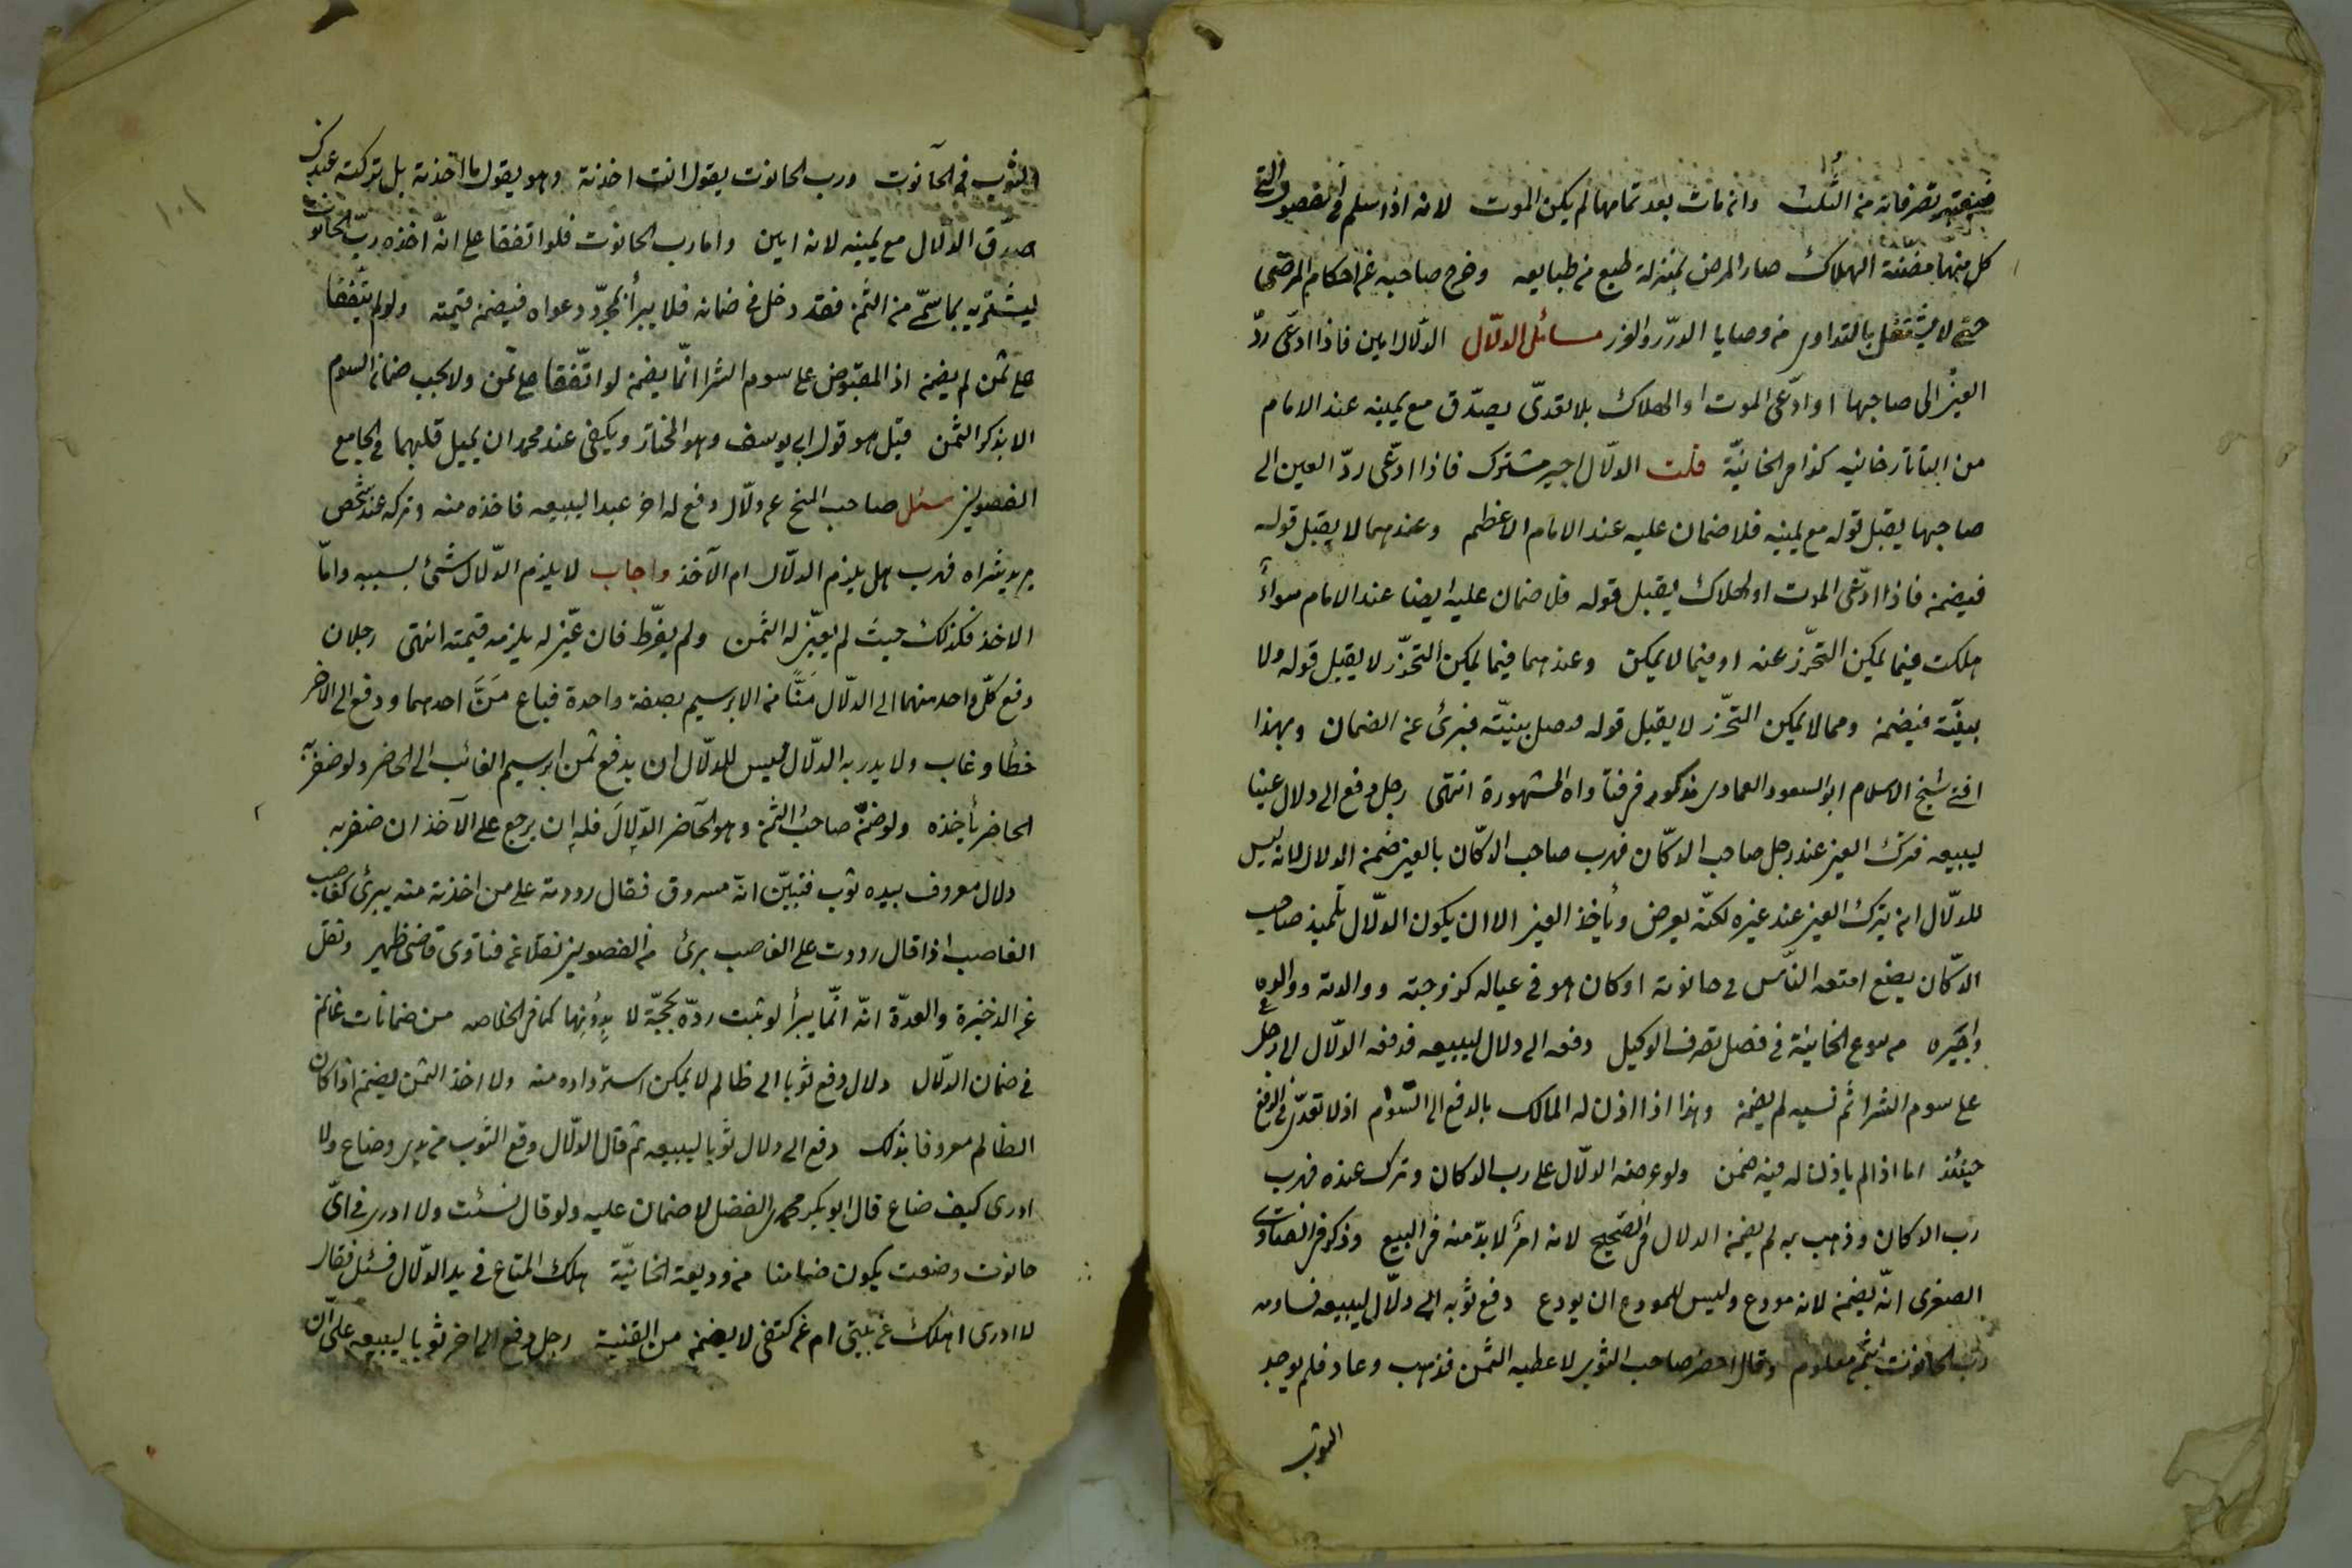 فيعتبر تصرفاته من الثلث وان مات بعد تمامها لم يكن الموت لانه اذا سلم في الفصول التي
كل منها مضنة الهلاك صار المرض بمنزلة طبع من طبايعه وخرج صاحبه عن احكام المرضى
حتى لا يشتغل بالتداوى من وصايا الدرر والغرر مسائل الدلّال الدلال امين فاذا ادعى ردّ
العين الى صاحبها او ادّعى الموت او الهلاك بلا تعدّى يصدّق مع يمينه عند الامام
من التاتارخانيه كذا في الخانيّة قلت الدلّال اجير مشترك فاذا ادّعى ردّ العين الى
صاحبها يقبل قوله مع يمينه فلا ضمان عليه عند الامام الاعظم وعندهما لا يقبل قوله
فيضمن فاذا ادّعى الموت او الهلاك يقبل قوله فلا ضمان عليه ايضا عند الامام سواءً
هلكت فيما يمكن التحرّز عنه او فيما لا يمكن وعندهما فيما يمكن التحرّز لا يقبل قوله ولا
بيّنة فيضمن ومما لا يمكن التحرّز لا يقبل قوله بينّته فبرئ عن الضمان وبهذا
افتى شيخ الاسلام ابو السعود العمادى مذكور في فتاواه المشهورة انتهى رجل دفع الى دلال عينا
ليبيعه فترك العين عند رجل صاحب الدكّان فهرب صاحب الدكّان بالعين ضمن الدلال لانه ليس
للدلّال ان يترك العين عند غيره لكنّه يعرض ويأخذ العين الا ان يكون الدلّال تلميذ صاحب
الدكّان يضع امتعة النّاس في حانوته او كان هو في عياله كزوجته ووالدته ووالده
واجيره من بيوع الخانيّة في فصل تصرف الوكيل دفعه الى دلال ليبيعه فدفعه الدلّال الى رجل
على سوم الشرا ثم نسيه لم يضمن وهذا اذا اذن له المالك بالدفع الى السّوم اذ لا تعدّى في الدفع
حينئذ اما اذا لم ياذن له فيه ضمن ولو عرضه الدلّال على رب الدكان وترك عنده فهرب
رب الدكان وذهب به لم يضمن الدلال في الصحيح لانه امرٌ لا بدّ منه في البيع وذكر في الفتاوى
الصغرى انّه يضمن لانه مودع وليس للمودع ان يودع دفع ثوبه الى دلّال ليبيعه فساومه
رب الحانوت بثمن معلوم وقال احضر صاحب الثوب لاعطيه الثمن فذهب وعاد فلم يوجد
الثوب
الثوب في الحانوت ورب الحانوت يقول انت اخذته وهو يقول ما اخذته بل تركته عندك
صدّق الدلّال مع يمينه لانه امين واما رب الحانوت فلو اتفقا على انّه اخذه ربّ الحانوت
ليشتريه بما سمّى من الثمن فقد دخل في ضمانه فلا يبرأ بمجرّد دعواه فيضمن قيمته ولو لم يتّفقا
على ثمن لم يضمن اذ المقبوض على سوم الشرا انّما يضمن لو اتّفقا على ثمن ولا يجب ضمان السوم
الا بذكر الثمن قيل هو قول ابى يوسف وهو المختار ويكفى عند محمد ان يميل قلبهما في الجامع
الفصولين سئل صاحب المنح عن دلّال دفع له اخر عبدا ليبيعه فاخذه منه وتركه عند شخص
يريد شراه فهرب هل يلزم الدلّال ام الآخذ واجاب لا يلزم الدلّال شئ بسببه وامّا
الاخذ فكذلك حيث لم يعيّن له الثمن ولم يفرّط فان عيّن له يلزمه قيمته انتهى رجلان
دفع كلّ واحد منهما الى الدلّال مَنًّا من الابريسم بصفة واحدة فباع مَنَّ احدهما ودفع الى الاخر
خطأ وغاب ولا يدر به الدلّال فليس للدلّال ان يدفع ثمن ابريسم الغائب الى الحاضر ولو ضفر به
الحاضر يأخذه ولو ضمّن صاحبُ الثمن وهو الحاضر الدّلالَ فله ان يرجع على الآخذ ان ضفر به
دلال معروف بيده ثوب فتبيّن انّه مسروق فقال رددته على من اخذته منه يبرئ كغاصب
الغاصب اذا قال رددت على الغاصب برئ من الفصولين نقلا عن فتاوى قاضى ظهير ونقل
عن الذخيرة والعدّة انّه انّما يبرأ لو ثبت ردّه بحجّة لا بدونها كما في الخلاصه من ضمانات غانم
في ضمان الدلّال دلال دفع ثوبا الى ظالم لا يمكن استرداده منه ولا اخذ الثمن يضمن اذا كان
الظالم معروفا بذلك دفع الى دلال ثوبا ليبيعه ثم قال الدلّال وقع الثوب من يدى وضاع ولا
ادرى كيف ضاع قال ابو بكر محمد بن الفضل لا ضمان عليه ولو قال نسئت ولا ادرى في اىّ
حانوت وضعت يكون ضامنا من وديعة الخانيّة هلك المتاع في يد الدلّال فسئل فقال
لا ادرى اهلك عن بيتى ام عن كتفى لا يضمن من القنية رجل دفع الى اخر ثوبا ليبيعه على ان